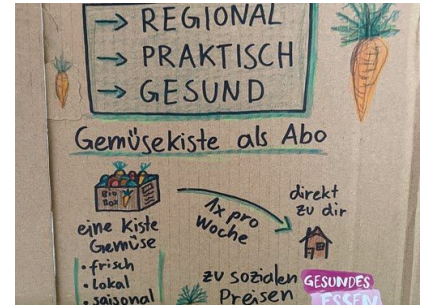 → REGIONAL
→ PRAKTISCH
→ GESUND
Gemüsekiste als Abo
Bio
Box
eine Kiste
Gemüse
• frisch
• lokal
• saisonal
1x pro
Woche
direkt
zu dir
zu sozialen
Preisen
GESUNDES
ESSEN